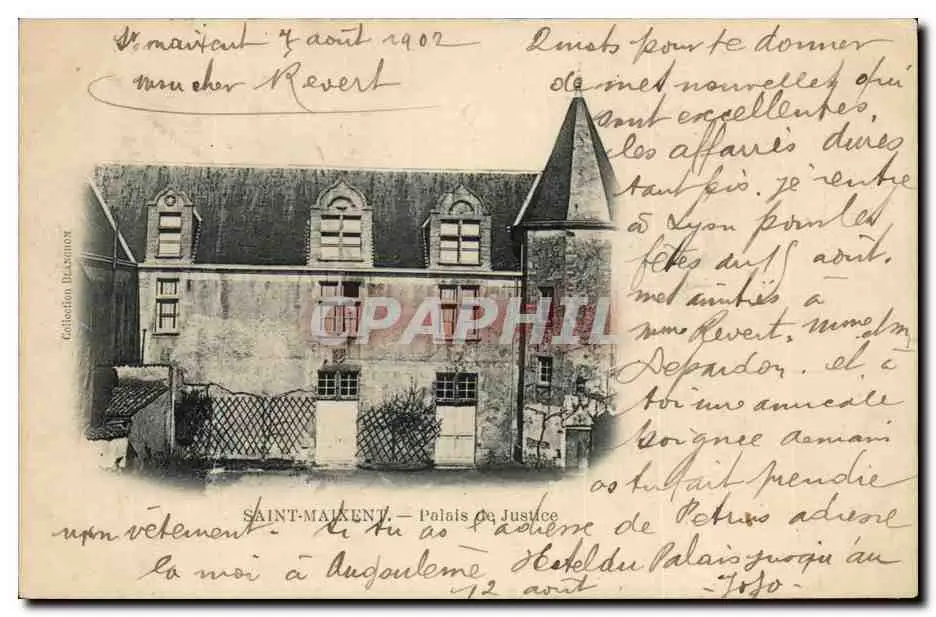 St maixent 7 août 1902
mon cher Revert
2 mots pour te donner
de mes nouvelles qui
sont excellentes.
les affaires dures
toutefois. je rentre
à Lyon pour les
fêtes du 15 août.
mes amitiés à
mme Revert, mme
Depardon. et à
toi une amicale
poignée de main
as tu fait prendre
mon vêtement. si tu as l'adresse de Petrus adresse
la moi à Angoulême Hotel du Palais jusqu'au
12 août - JoJo -
Collection BLANCHOM
CPAPHIL
SAINT-MAIXENT. — Palais de Justice